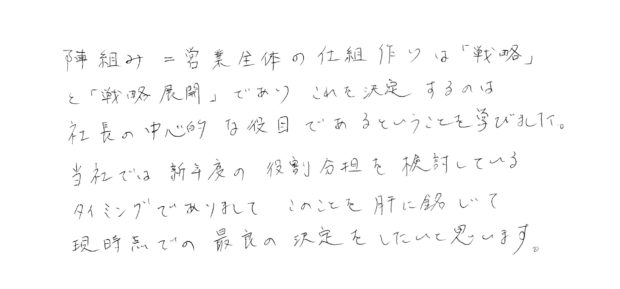 陣組み＝営業全体の仕組作りは「戦略」
と「戦略展開」であり これを決定するのは
社長の中心的な役目であるということを学びました。
当社では新年度の役割分担を検討している
タイミングでありまして このことを肝に銘じて
現時点での最良の決定をしたいと思います。